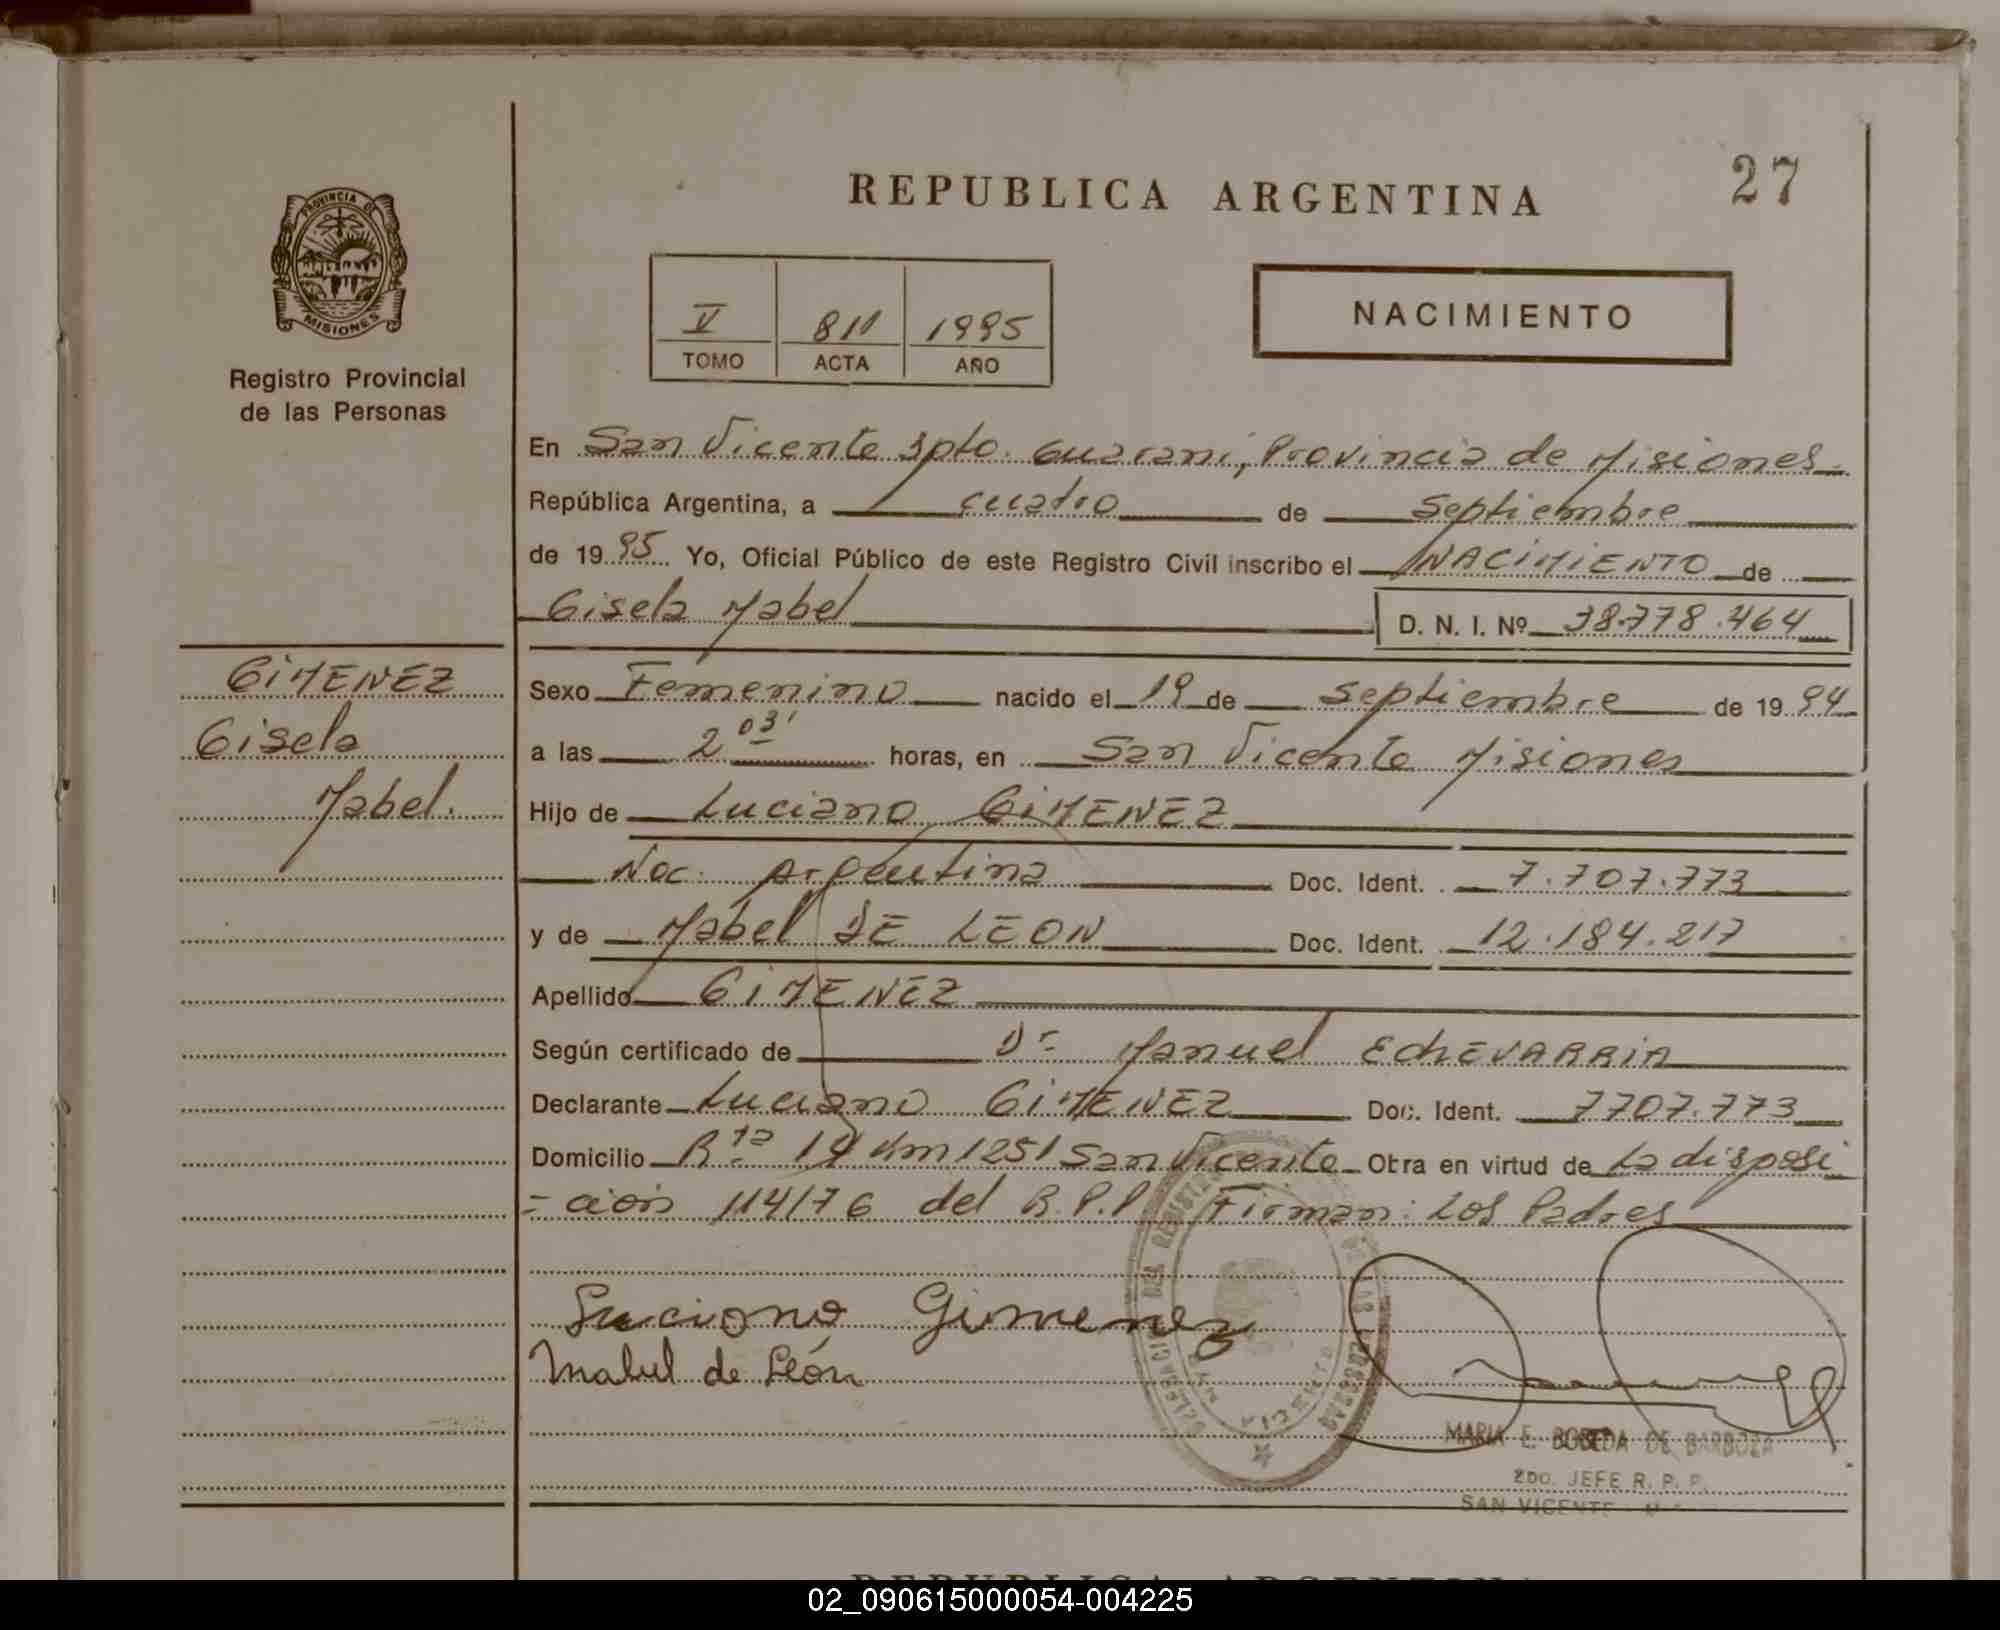 REPUBLICA ARGENTINA
27
PROVINCIA DE
MISIONES
Registro Provincial
de las Personas
V 811 1995
TOMO ACTA AÑO
NACIMIENTO
En San Vicente Dpto. Guarani, Provincia de Misiones.
República Argentina, a cuatro de Septiembre
de 1995 Yo, Oficial Público de este Registro Civil inscribo el NACIMIENTO de
Gisela Mabel
D. N. I. Nº 38.778.464
GIMENEZ
Gisela
Mabel.
Sexo Femenino nacido el 19 de Septiembre de 1994
a las 2 03' horas, en San Vicente Misiones
Hijo de Luciano GIMENEZ
Nac. Argentina Doc. Ident. 7.707.773
y de Mabel DE LEON Doc. Ident. 12.184.217
Apellido GIMENEZ
Según certificado de Dr Manuel ECHEVARRIA
Declarante Luciano GIMENEZ Doc. Ident. 7707.773
Domicilio Rta 14 Km 1251 San Vicente Otra en virtud de La disposi
-ción 114/76 del R.P.P Firman: Los Padres
Luciano Gimenez
Mabel de León
MARIA E. BOBEDA DE BARBOZA
2DO. JEFE R. P. P.
SAN VICENTE
REPUBLICA ARGENTINA
02_090615000054-004225